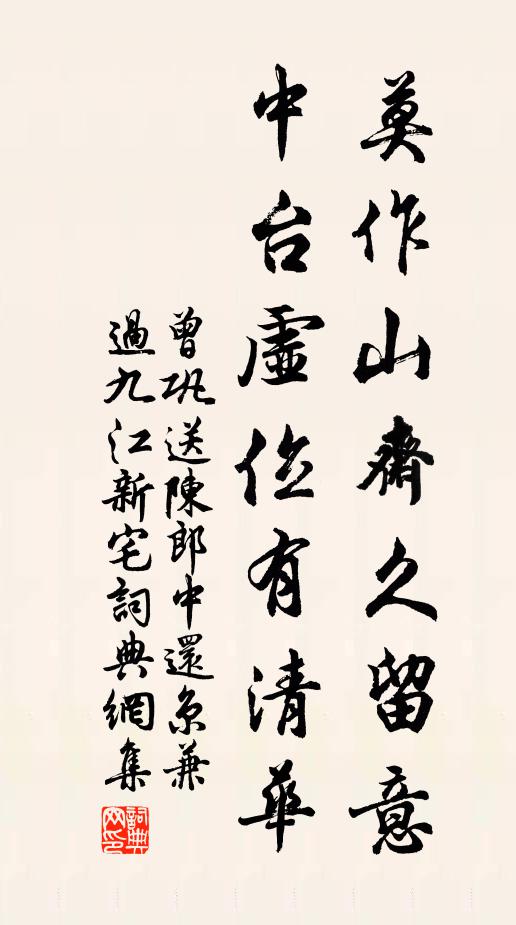 莫作山齋久留意
中台虛位有清華
曾鞏送陳郎中還京兼
過九江新宅詞典網集
詞典網印